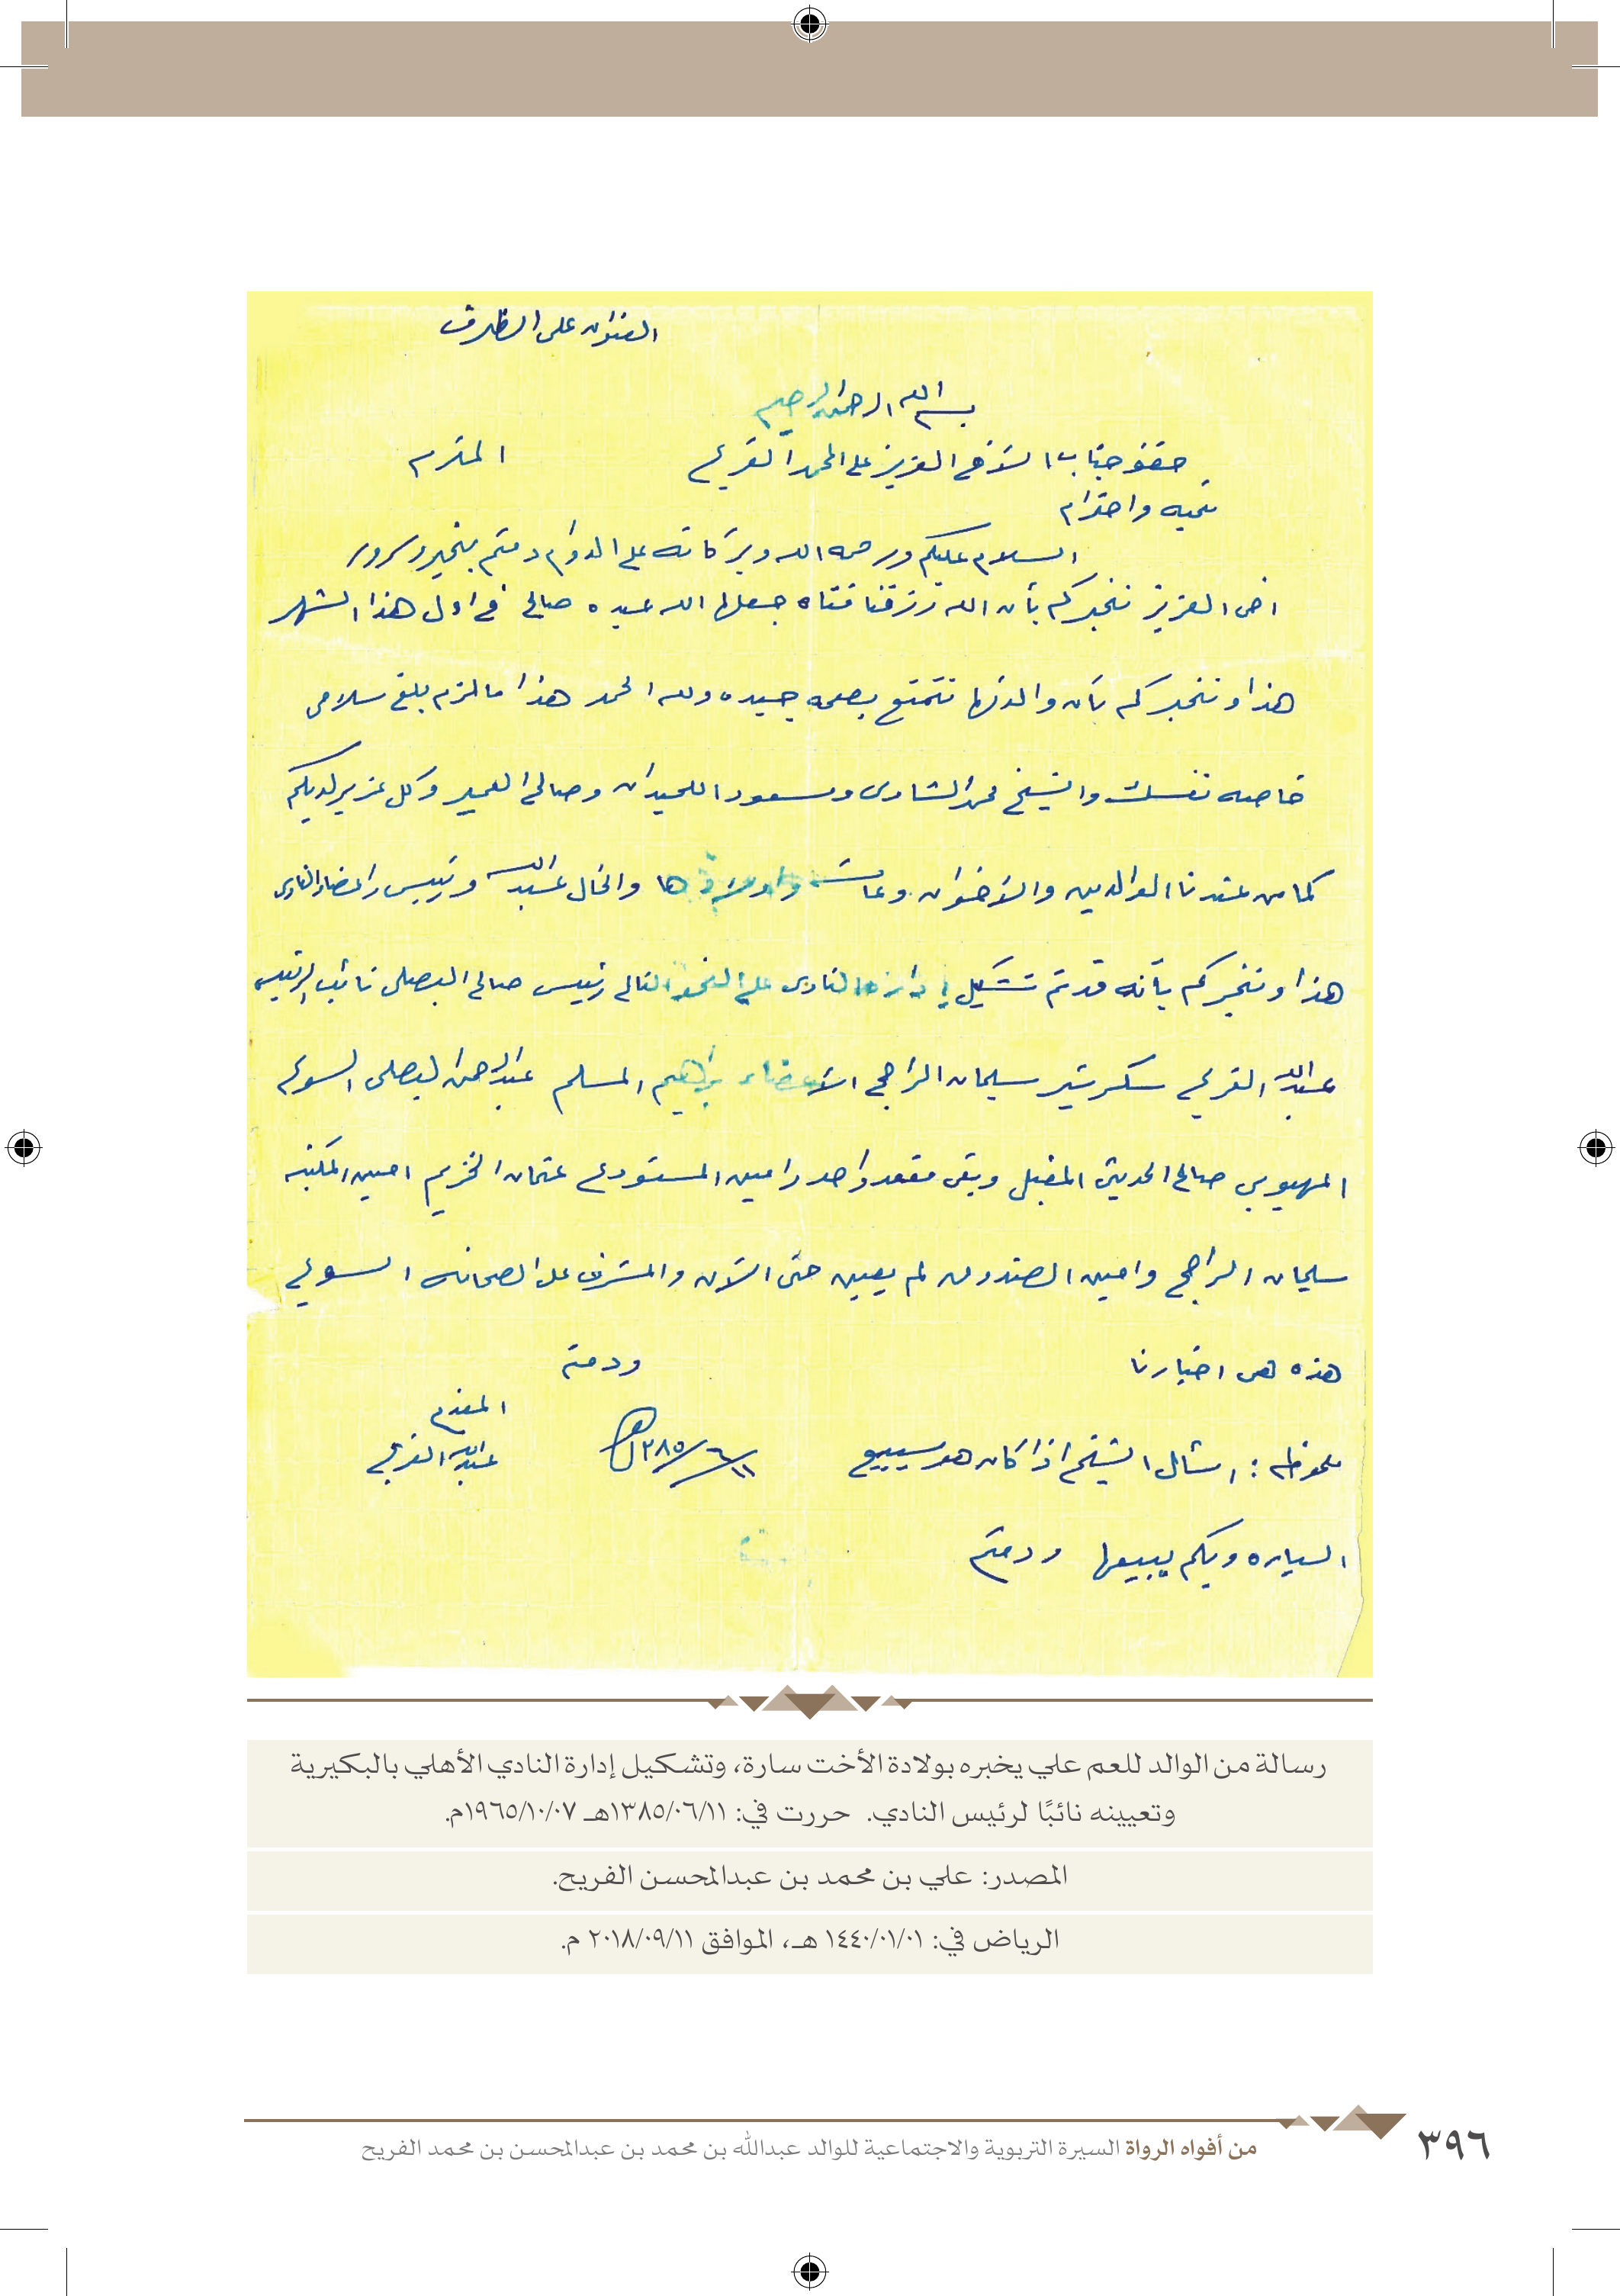 العنوان على الظرف
بسم الله الرحمن الرحيم
حضرة جناب الأخ العزيز علي المحمد الفريح المحترم
تحيه واحترام
السلام عليكم ورحمه الله وبركاته على الدوام دمتم بخير وسرور
اخي العزيز نخبركم بأن الله رزقنا فتاه جعلها الله عبده صالح في اول هذا الشهر
هذا ونخبركم بأن والدتها تتمتع بصحه جيده ولله الحمد هذا مالزم بلغ سلامي
خاصه نفسك والشيخ محمد الشاوي ومسعود اللحيدان وصالح العمير وكل عزيز لديكم
كما من عندنا الوالدين والأخوان والخال عبدالله ورئيس واعضاء النادي
هذا ونخبركم بأنه قد تم تشكيل إدارة النادي على النحو التالي رئيس صالح البصلي نائب الرئيس
عبدالله الفريح سكرتير سليمان الراجحي الأعضاء براهيم المسلم عبدالرحمن البصلي السويح
المهيوبي صالح الحديثي المقبل وبقي مقعد واحد وامين المستودع عثمان الخزيم امين المكتبه
سليمان الراجحي وامين الصندوق لم يعين حتى الآن والمشرف على الصحافه السويح
هذه هي اخبارنا ودمتم
المقدم
ملحوظه : اسئال الشيخ اذا كان هو سيبيع ١٣٨٥/٦/١١هـ عبدالله الفريح
السياره وبكم يبيعها ودمتم
رسالة من الوالد للعم علي يخبره بولادة الأخت سارة، وتشكيل إدارة النادي الأهلي بالبكيرية
وتعيينه نائبًا لرئيس النادي. حررت في: ١٣٨٥/٠٦/١١هـ ١٩٦٥/١٠/٠٧م.
المصدر: علي بن محمد بن عبدالمحسن الفريح.
الرياض في: ١٤٤٠/٠١/٠١ هـ، الموافق ٢٠١٨/٠٩/١١ م.
من أفواه الرواة السيرة التربوية والاجتماعية للوالد عبدالله بن محمد بن عبدالمحسن بن محمد الفريح
٣٩٦